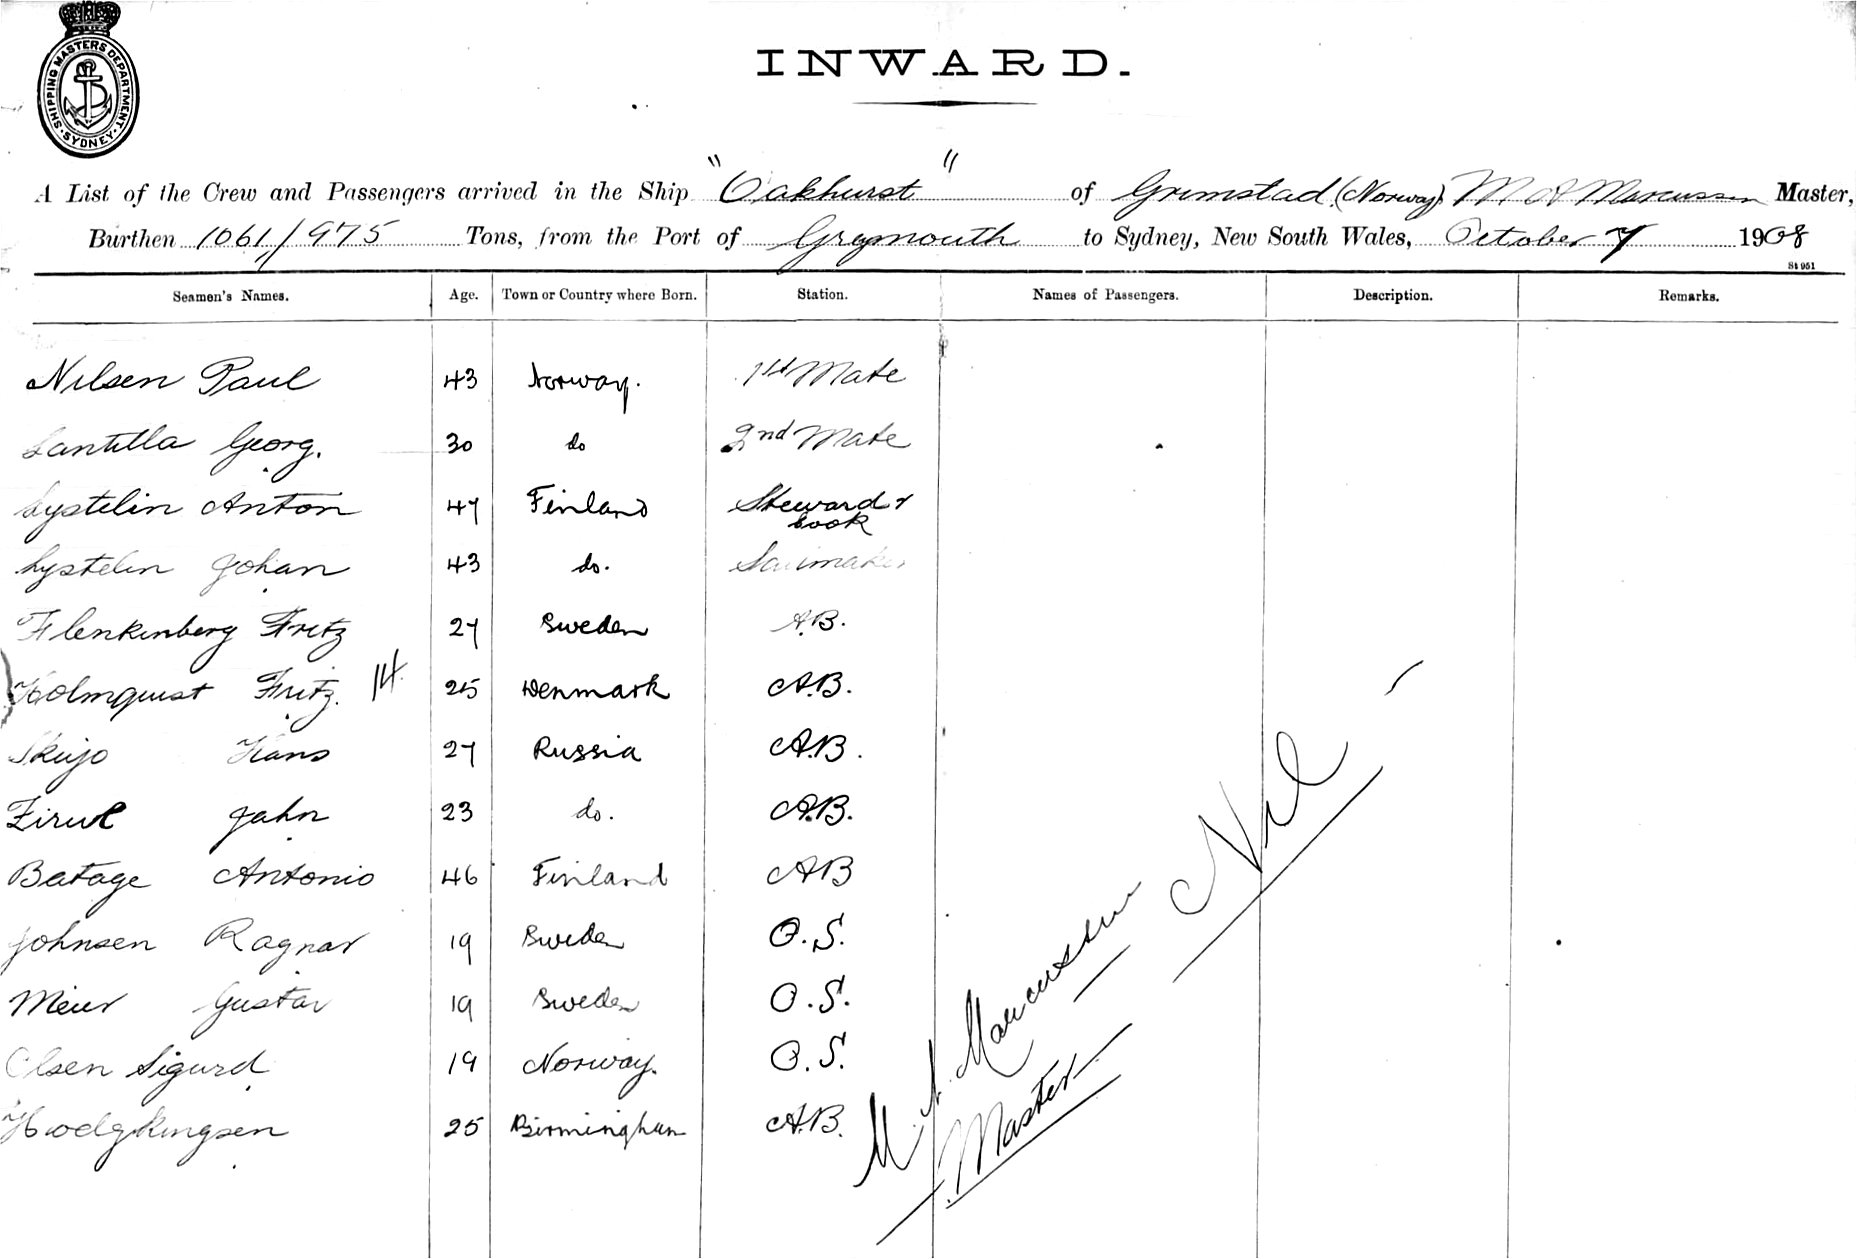 SHIPPING MASTERS DEPARTMENT. SYDNEY
INWARD.
A List of the Crew and Passengers arrived in the Ship "Oakhurst" of Grimstad (Norway) M A Marcussen Master,
Burthen 1061/975 Tons, from the Port of Greymouth to Sydney, New South Wales, October 7 1908
St 951
Seamen's Names. Age. Town or Country where Born. Station. Names of Passengers. Description. Remarks.
Nilsen Paul 43 Norway. 1st Mate
Santilla Georg. 30 do 2nd Mate
Lystelin Anton 47 Finland Steward &
Cook
Lystelin Johan 43 do. Sailmaker
Flenkenberg Fritz 27 Sweden A.B.
Holmquist Fritz. 14 25 Denmark A.B.
Skujo Hans 27 Russia A.B.
Jahn 23 do. A.B.
Batage Antonio 46 Finland AB
Johnsen Ragnar 19 Sweden O.S.
Meur Gustav 19 Sweden O.S.
Olsen Sigurd 19 Norway. O.S.
Hwodgkingsen 25 Birmingham A.B.
Nil
M A Marcussen
Master